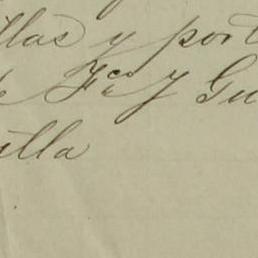 llas y port
Fco J Gu
illa